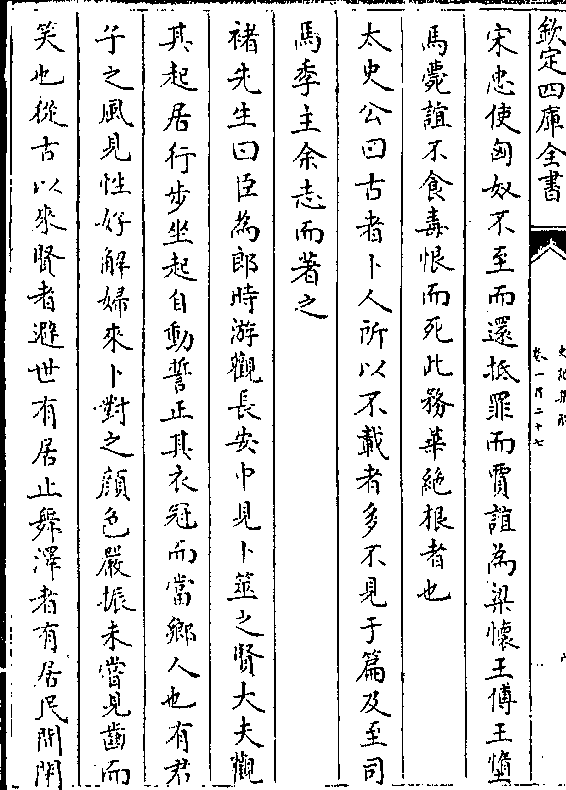 欽定四庫全書
卷一百二十七
宋忠使匈奴不至而還抵罪而賈誼為梁懷王傅王墮
馬薨誼不食毒恨而死此務華絕根者也
太史公曰古者卜人所以不載者多不見于篇及至司
馬季主余志而著之
褚先生曰臣為郎時游觀長安中見卜筮之賢大夫觀
其起居行步坐起自動誓正其衣冠而當鄉人也有君
子之風見性好解婦來卜對之顔色嚴振未嘗見齒而
笑也從古以來賢者避世有居止舞澤者有居民間閉